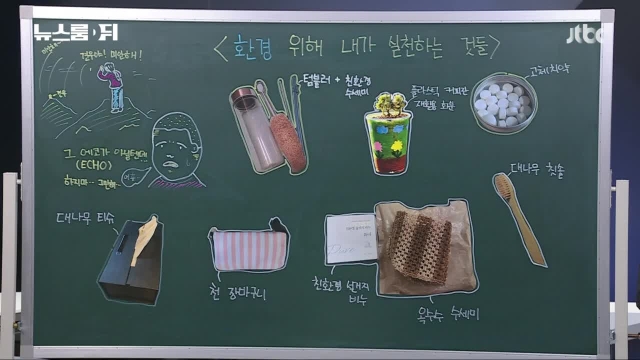 뉴스룸,뒤
jtbc
<환경 위해 내가 실천하는 것들>
견우야! 미안해!
그 에코가 아닐텐데
(ECHO)
텀블러 + 친환경
수세미
플라스틱 커피잔
재활용 화분
고체치약
대나무 칫솔
대나무 티슈
천 장바구니
친환경 설거지
비누
옥수수 수세미